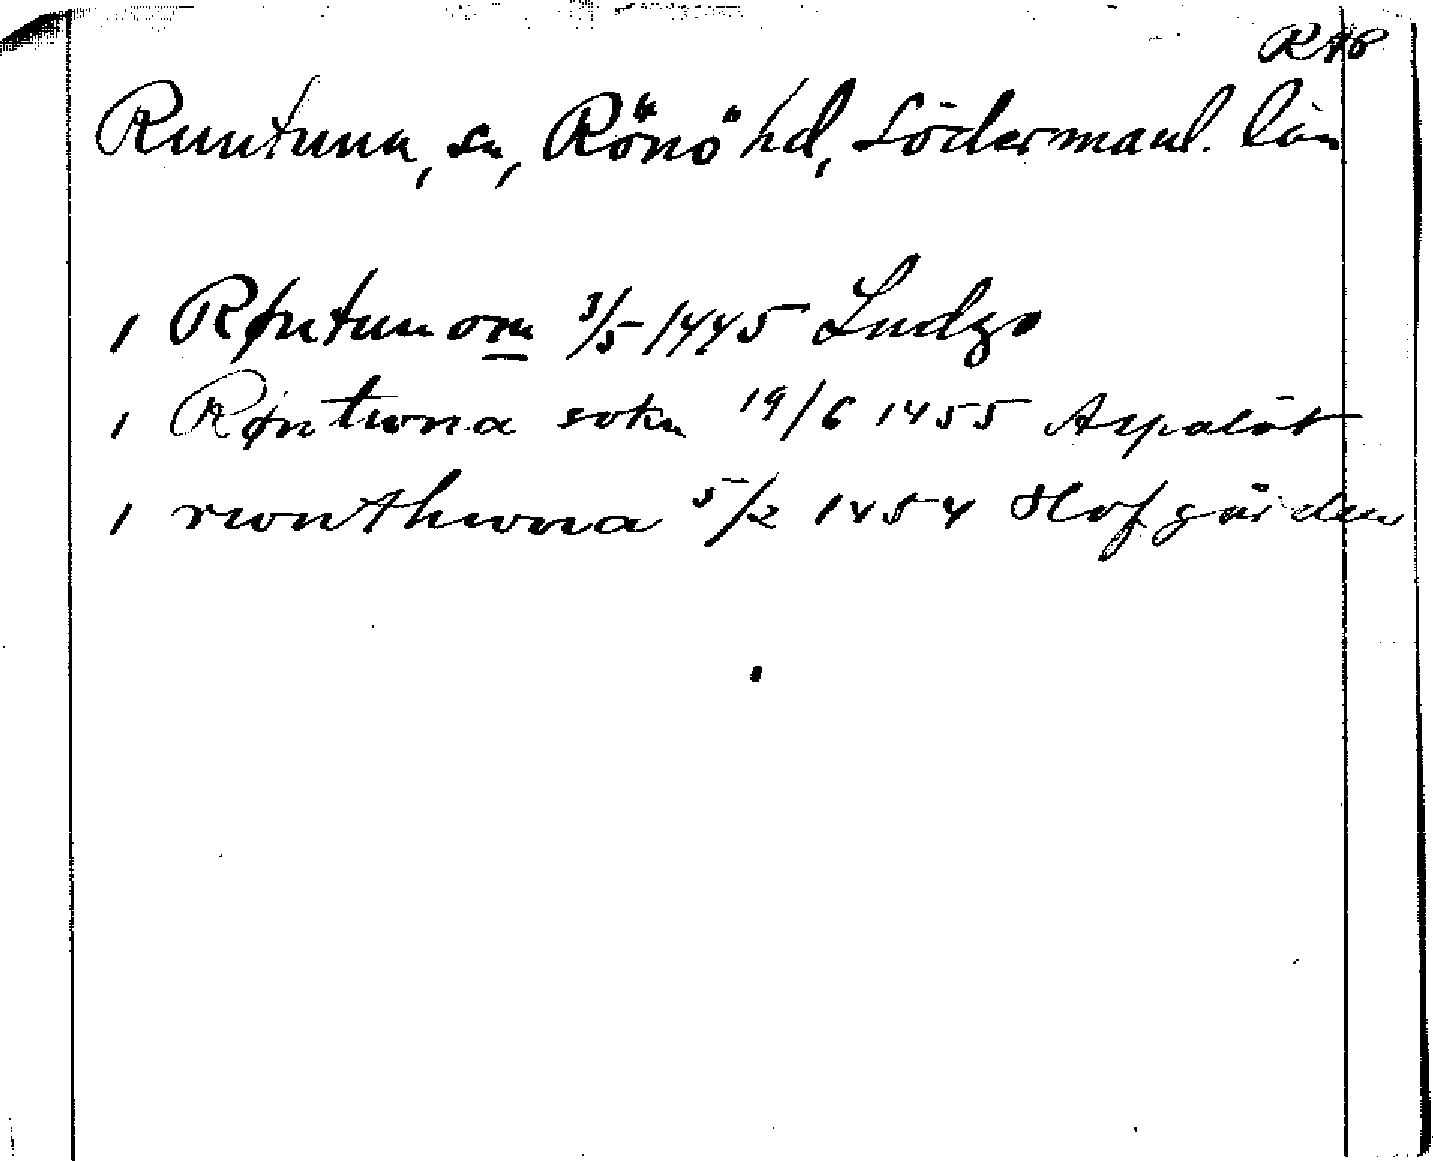 RAP
Runtuna, sn, Rönö hd, Södermanl. län
1 Røntunom 3/5 1445 Ludgo
1 Røntwna sokn 19/6 1455 Aspalöt
1 rwnthwna 5/2 1454 Hofgården